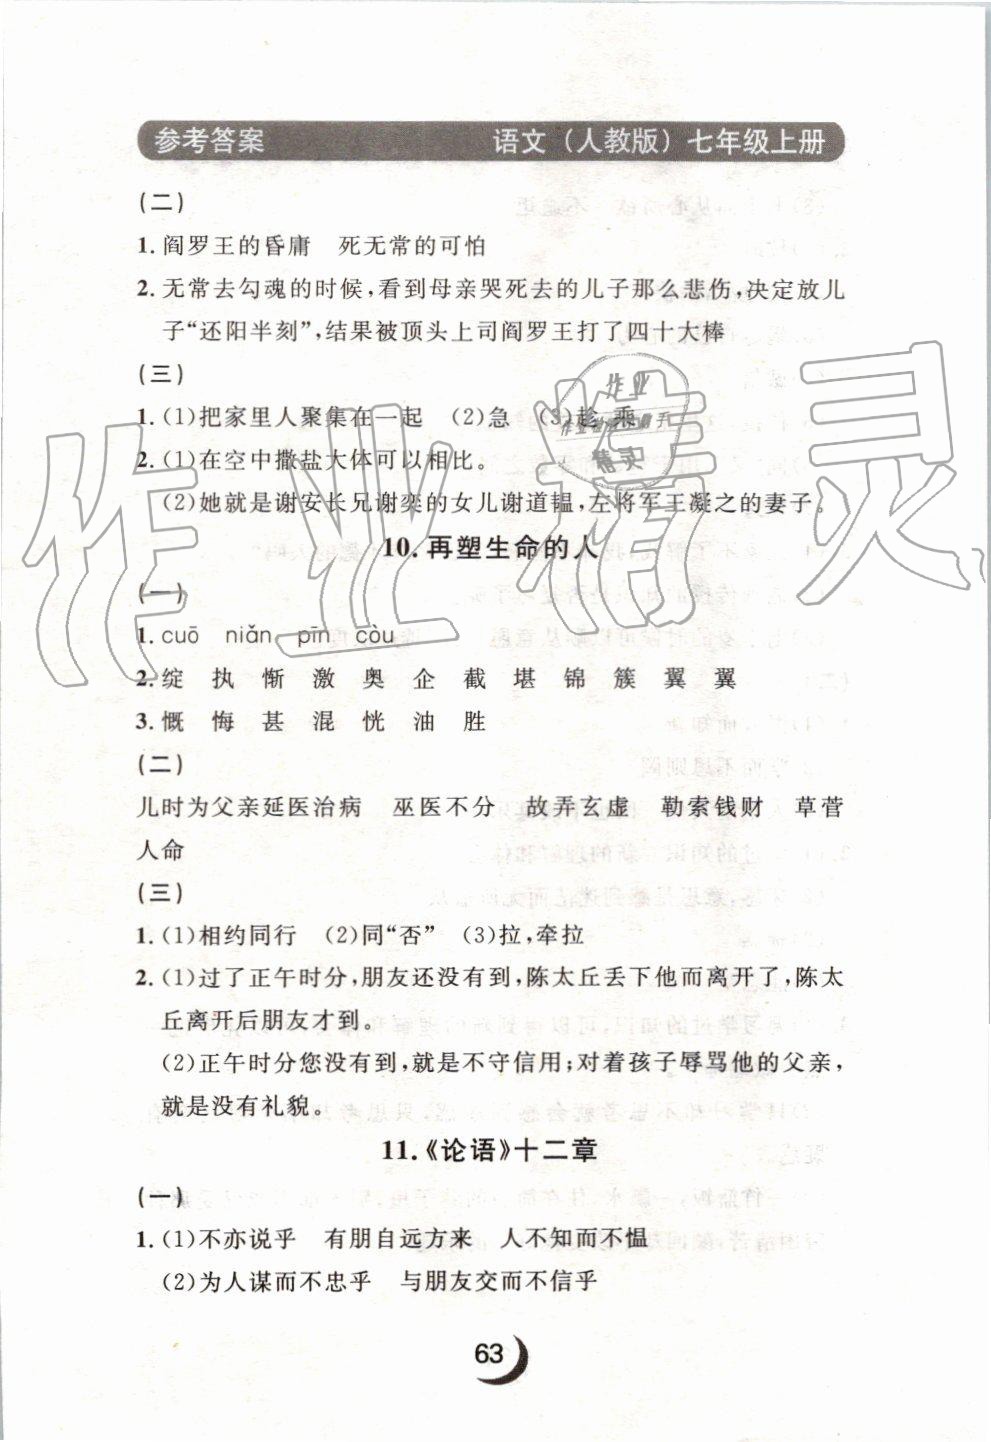 参考答案 语文（人教版）七年级上册
(二)
1. 阎罗王的昏庸 死无常的可怕
2. 无常去勾魂的时候,看到母亲哭死去的儿子那么悲伤,决定放儿
子“还阳半刻”,结果被顶头上司阎罗王打了四十大棒
(三)
1. (1)把家里人聚集在一起 (2)急 (3)趁 乘
2. (1)在空中撒盐大体可以相比。
(2)她就是谢安长兄谢奕的女儿谢道韫,左将军王凝之的妻子。
10. 再塑生命的人
(一)
1. cuō niǎn pīn còu
2. 绽 执 惭 激 奥 企 截 堪 锦 簇 翼 翼
3. 慨 悔 甚 混 恍 油 胜
(二)
儿时为父亲延医治病 巫医不分 故弄玄虚 勒索钱财 草菅
人命
(三)
1. (1)相约同行 (2)同“否” (3)拉,牵拉
2. (1)过了正午时分,朋友还没有到,陈太丘丢下他而离开了,陈太
丘离开后朋友才到。
(2)正午时分您没有到,就是不守信用;对着孩子辱骂他的父亲,
就是没有礼貌。
11.《论语》十二章
(一)
1. (1)不亦说乎 有朋自远方来 人不知而不愠
(2)为人谋而不忠乎 与朋友交而不信乎
63
作业精灵
作业
精灵